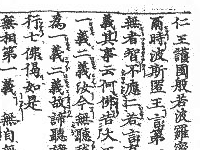 仁王護國般若波羅蜜
爾時波斯匿王言第
無者智不應二若言
義其事云何佛言大王
一義二義汝今無聽我
為一義二義故諦聽諦
行七佛偈如是
無相第一義　無自